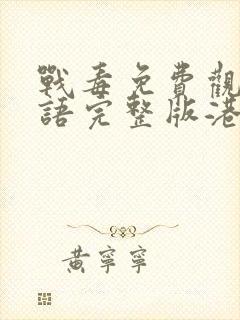 戰毒免費觀
語完整版港
黃寧寧